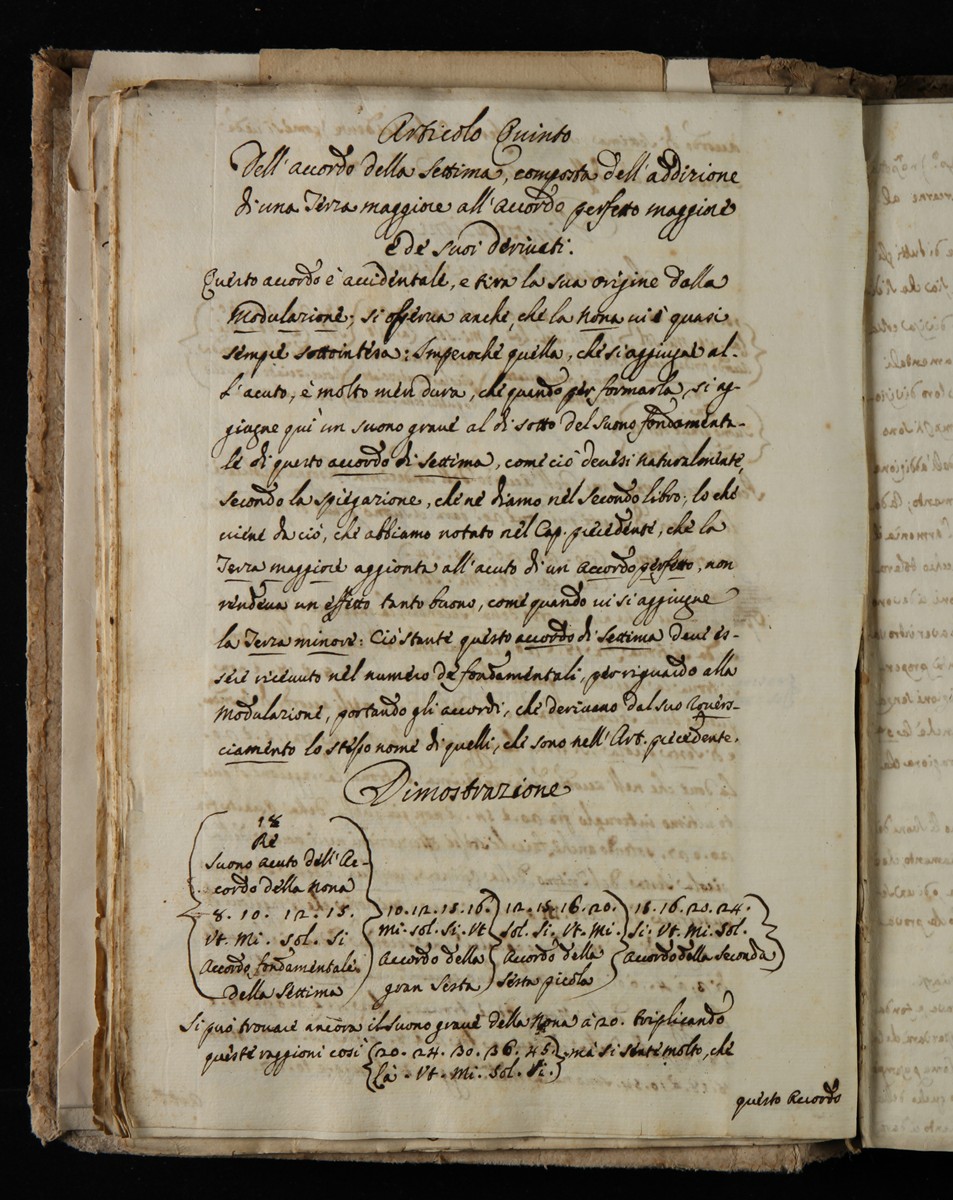 Articolo Quinto
Dell'accordo della Settima, composta dell'addizione
di una Terza maggiore all'accordo perfetto maggiore
è de suoi derivati.
Questo accordo è accidentale, e tira la sua origine dalla
Modulazione; si osserva anche, che la Nona vi è quasi
sempre sottointesa: Imperoché quella, che si aggiugne al-
l'acuto, è molto men dura, che quando per formarla, si ag-
giugne qui un suono grave al di sotto del suono fondamenta-
le di questo accordo di Settima, come ciò devesi naturalmente,
secondo la spiegazione, che ne diamo nel Secondo libro; lo che
viene da ciò, che abbiamo notato nel Cap. precedente, che la
Terza maggiore aggionta all'acuto di un accordo perfetto, non
rendeva un effetto tanto buono, come quando vi si aggiugne
la Terza minore: Ciò stante questo accordo di Settima deve es-
sere ricevuto nel numero de fondamentali, per riguardo alla
Modulazione, portando gli accordi, che derivano dal suo rovers-
ciamento lo stesso nome di quelli, che sono nell'Art. precedente.
Dimostrazione
18
Re
Suono acuto dell'Ac-
cordo della Nona
8. 10. 12. 15.
Vt. Mi. Sol. Si
Accordo fondamentale
della Settima
10. 12. 15. 16.
Mi. Sol. Si. Vt
Accordo della
gran Sesta
12. 15. 16. 20.
Sol. Si. Vt. Mi.
Accordo della
Sesta picola
15. 16. 20. 24.
Si. Vt. Mi. Sol.
Accordo della Seconda
Si può trovare ancora il suono grave della Nona à 20. triplicando
queste raggioni così (20. 24. 30. 36. 45.) ma si sente molto, che
(La. Vt. Mi. Sol. Si.)
questo Accordo